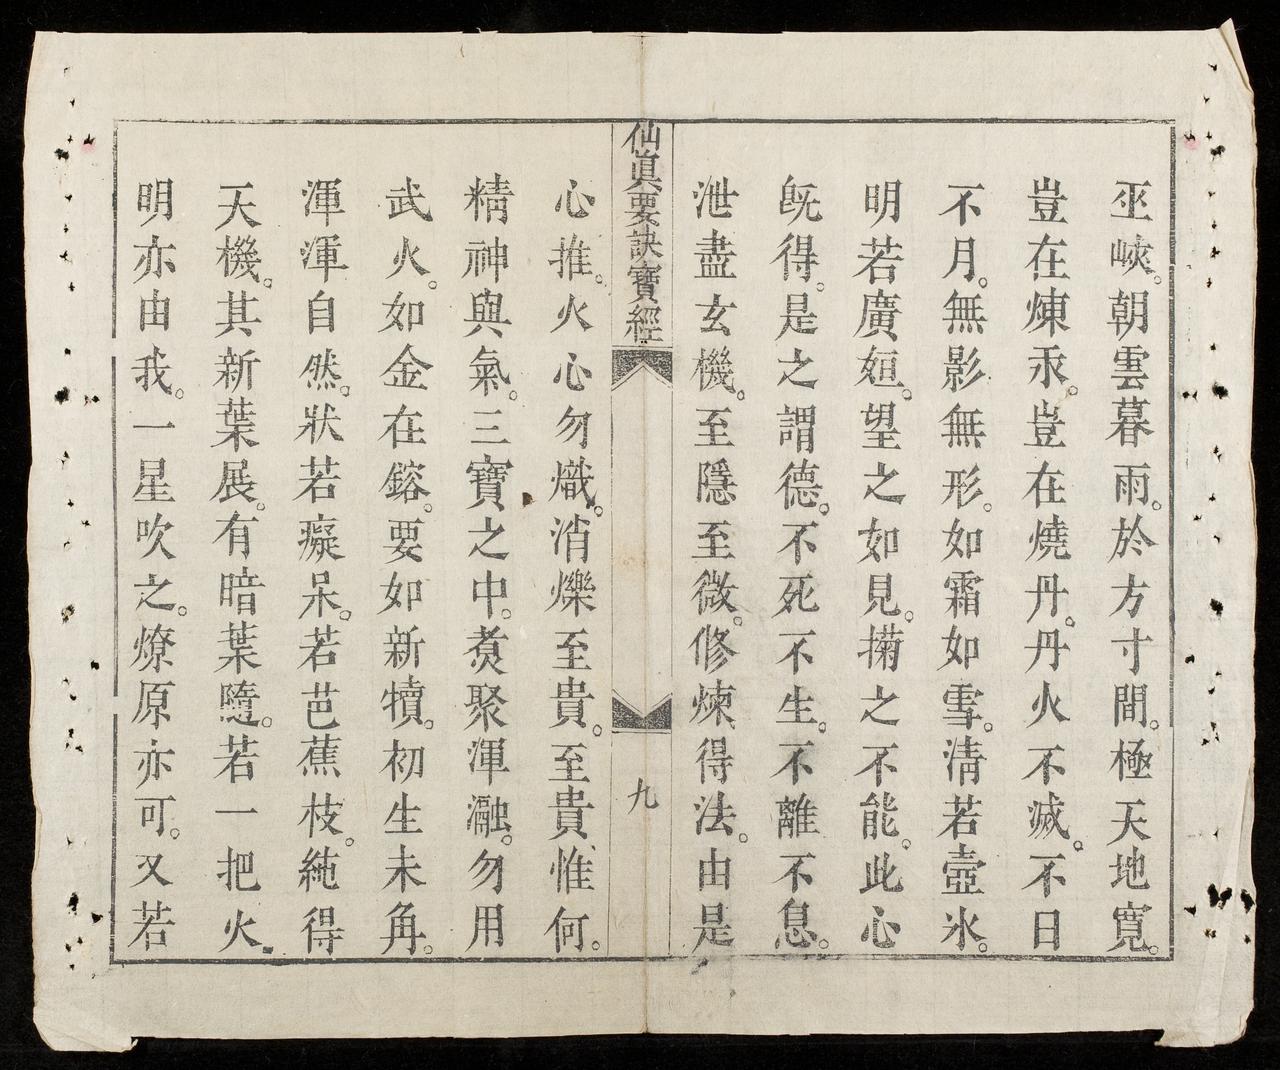 巫峽。朝雲暮雨。於方寸間。極天地寬。
豈在煉汞。豈在燒丹。丹火不滅。不日
不月。無影無形。如霜如雪。清若壺氷。
明若廣姮。望之如見。掬之不能。此心
旣得。是之謂德。不死不生。不離不息。
泄盡玄機。至隱至微。修煉得法。由是
仙眞要訣寶經
九
心推。火心勿熾。消爍至貴。至貴惟何。
精神與氣。三寶之中。煮聚渾瀜。勿用
武火。如金在鎔。要如新犢。初生未角。
渾渾自然。狀若癡呆。若芭蕉枝。純得
天機。其新葉展。有暗葉隨。若一把火。
明亦由我。一星吹之。燎原亦可。又若